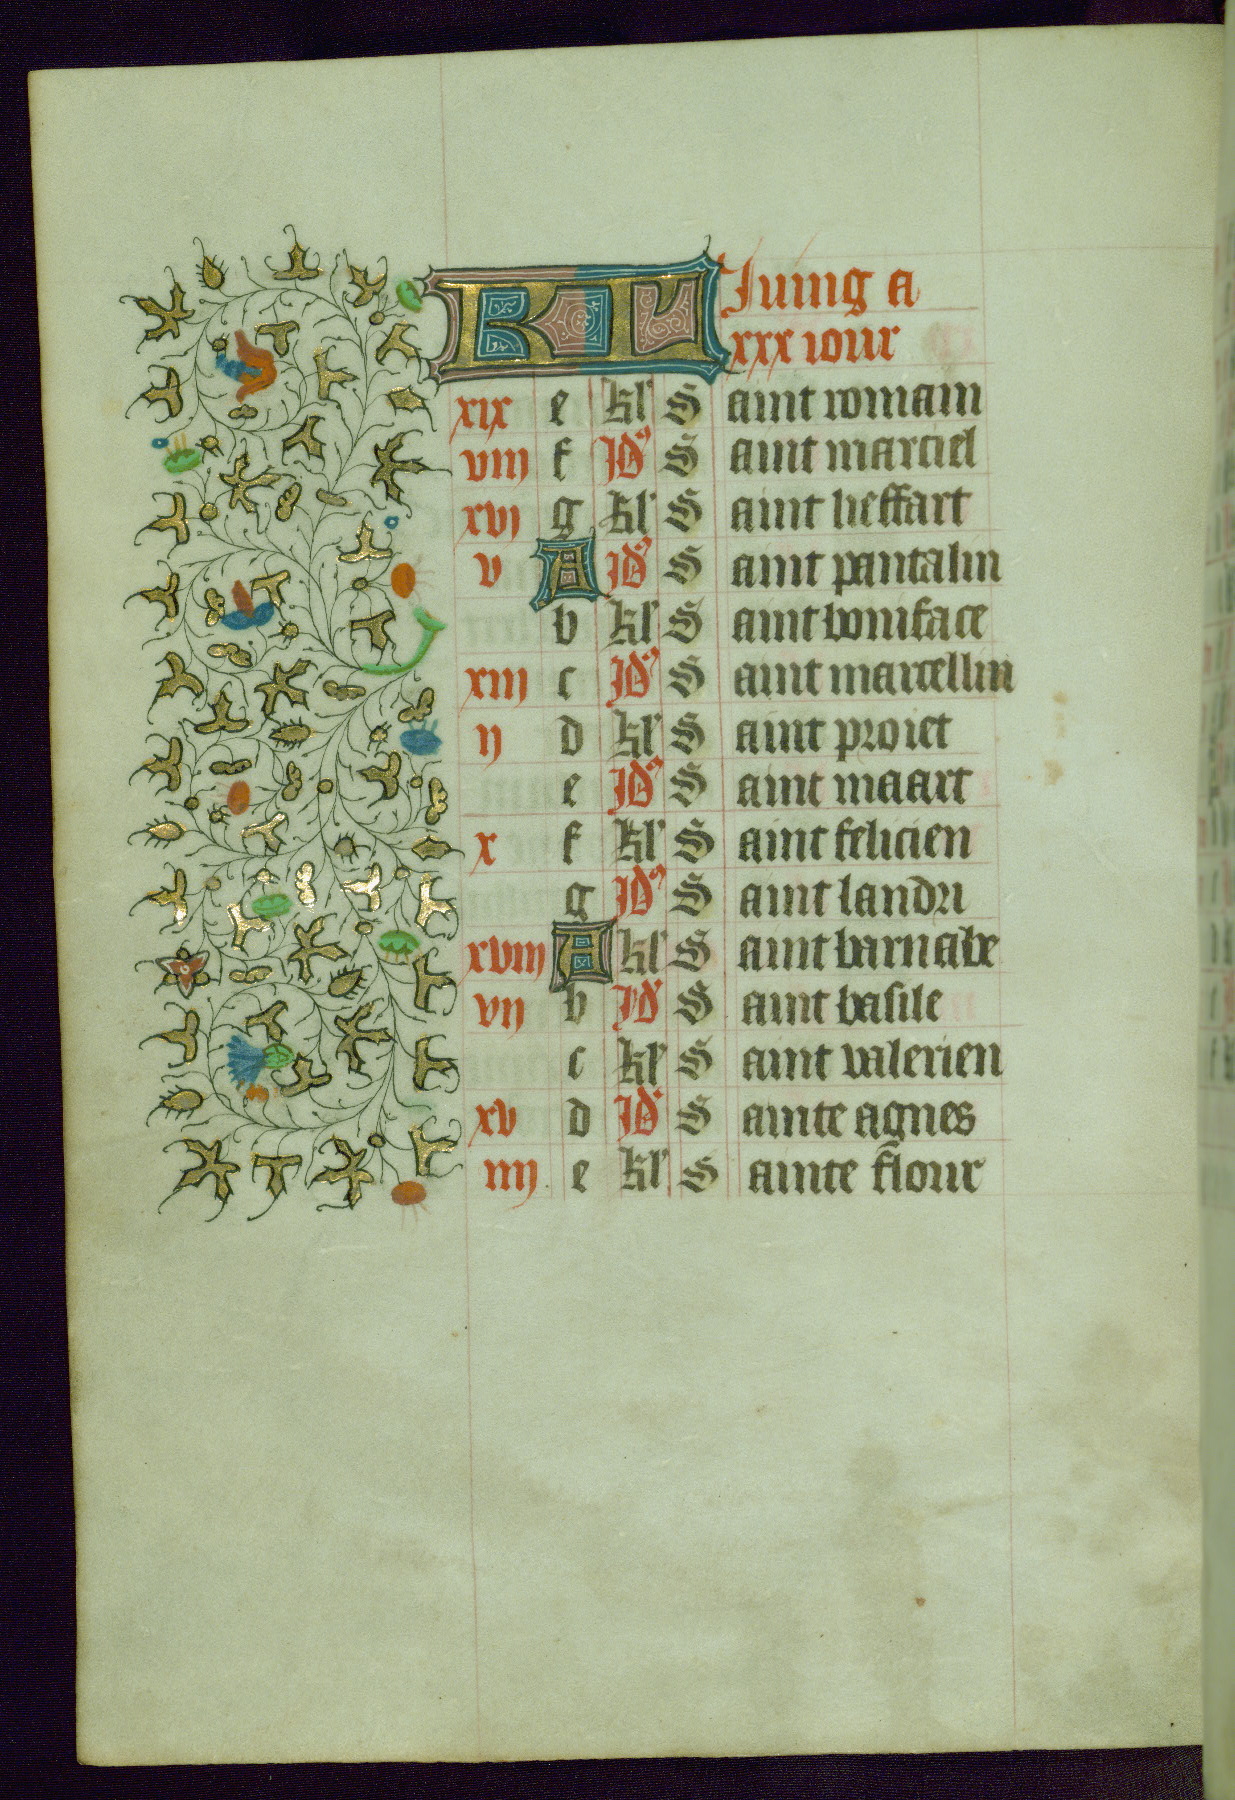 KL Juing a
xxx iour
xix e kl' S aint romain
viii f Id' S aint marciel
xvi g kl' S aint lieffart
v A Id' S aint pantalin
b kl' S aint boniface
xiii c Id' S aint marcellin
ii d kl' S aint proiet
e Id' S aint maart
x f kl' S aint felicien
g Id' S aint landri
xviii A kl' S aint barnabe
vii b Id' S aint basile
c kl' S aint valerien
xv d Id' S ainte agnes
iiii e kl' S ainte flour